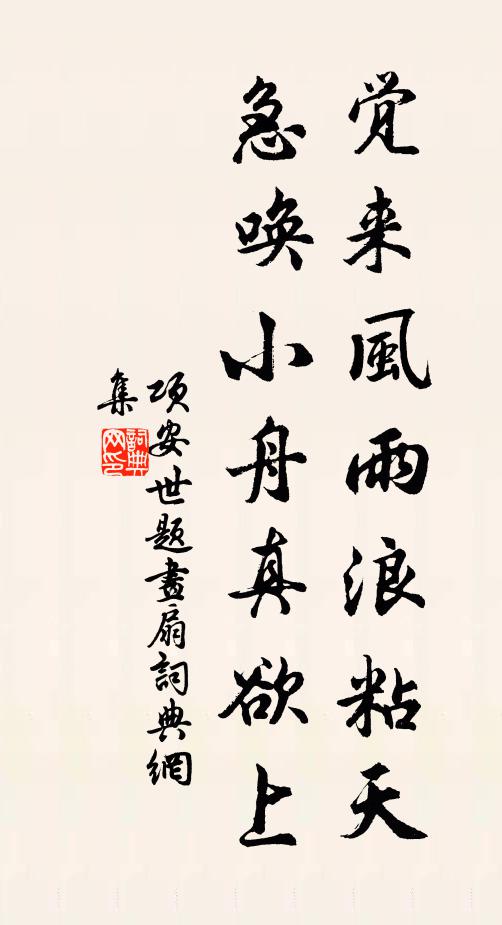 觉来風雨浪粘天
急唤小舟真欲上
项安世题畫扇詞典網
集
詞典网印